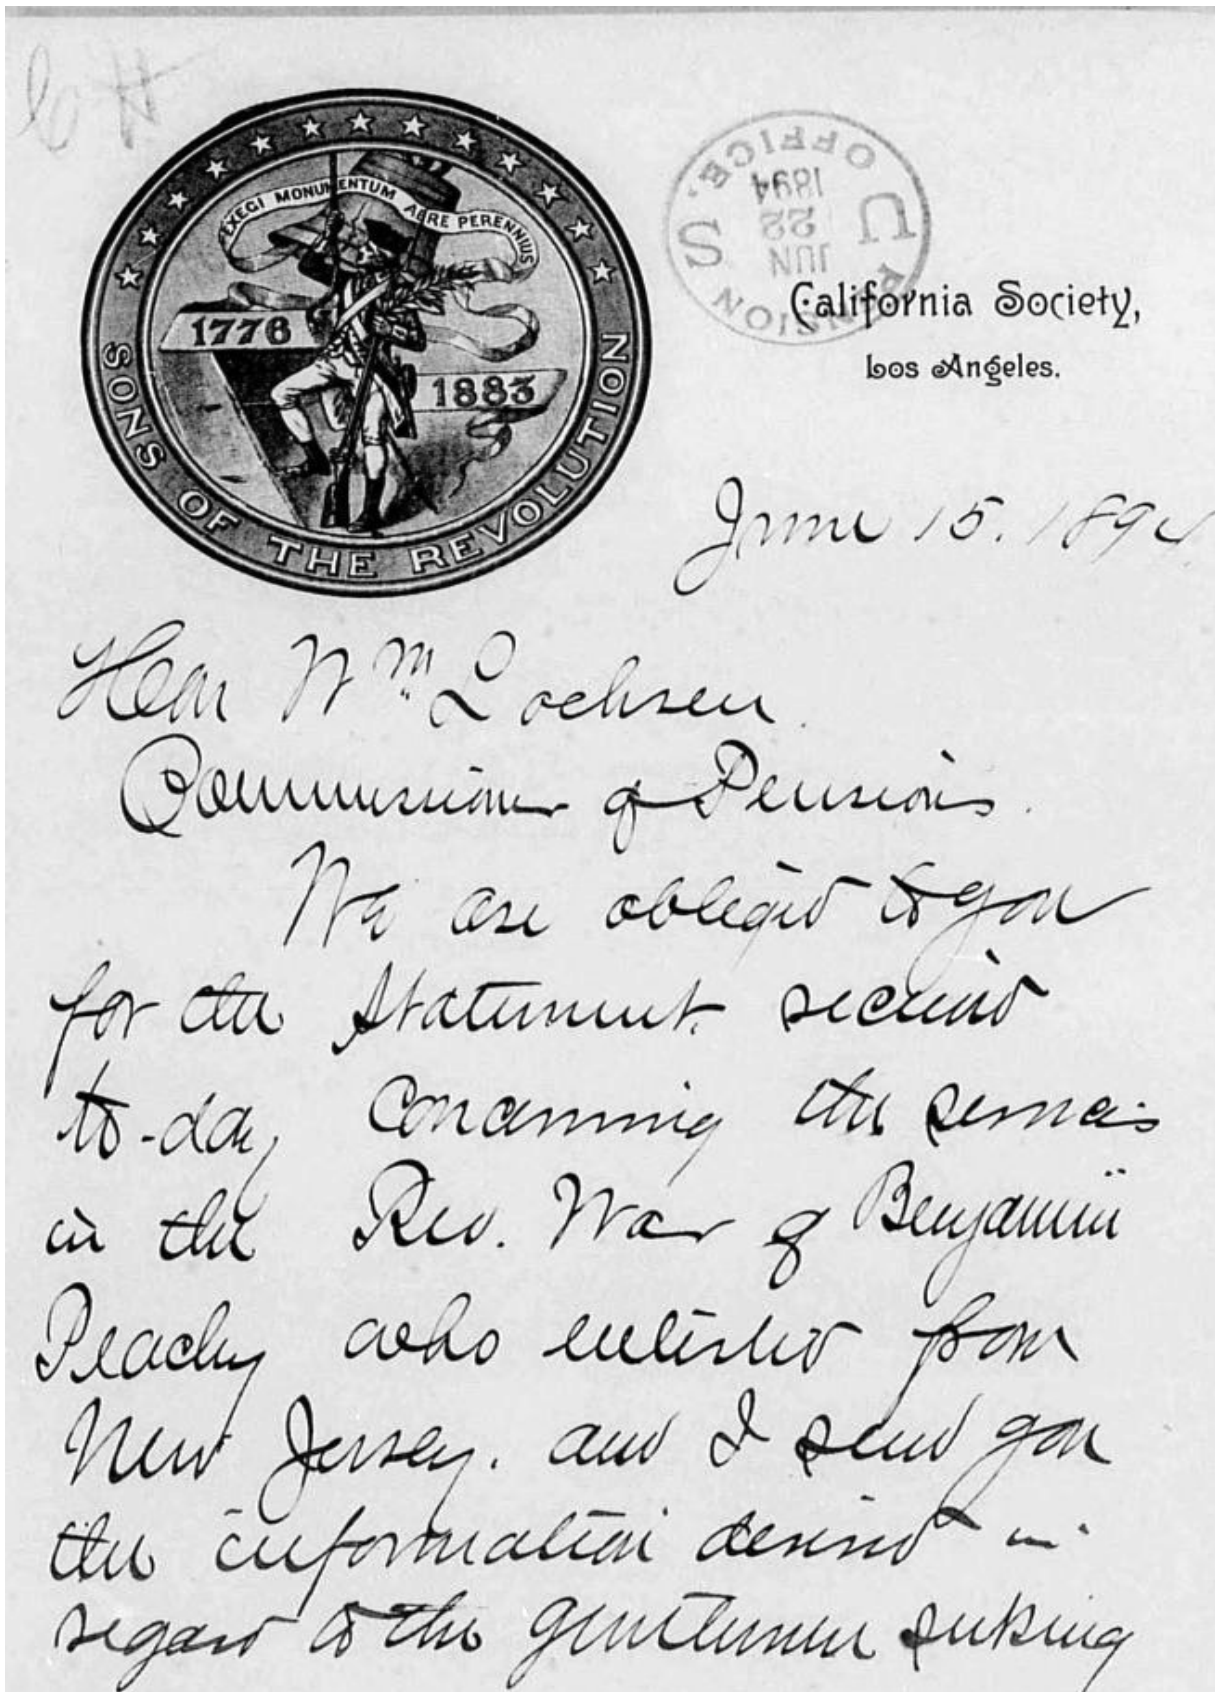 EXEGI MONUMENTUM AERE PERENNIUS
1776
1883
SONS OF THE REVOLUTION
U.S. PENSION OFFICE.
JUN
22
1894
California Society,
Los Angeles.
June 15. 1894
Hon Wm Lochren
Commissioner of Pensions.
We are obliged to you
for the statement received
to-day concerning the services
in the Rev. War of Benjamin
Peachy who enlisted from
New Jersey. and I send you
the information desired in
regard to the gentleman seeking